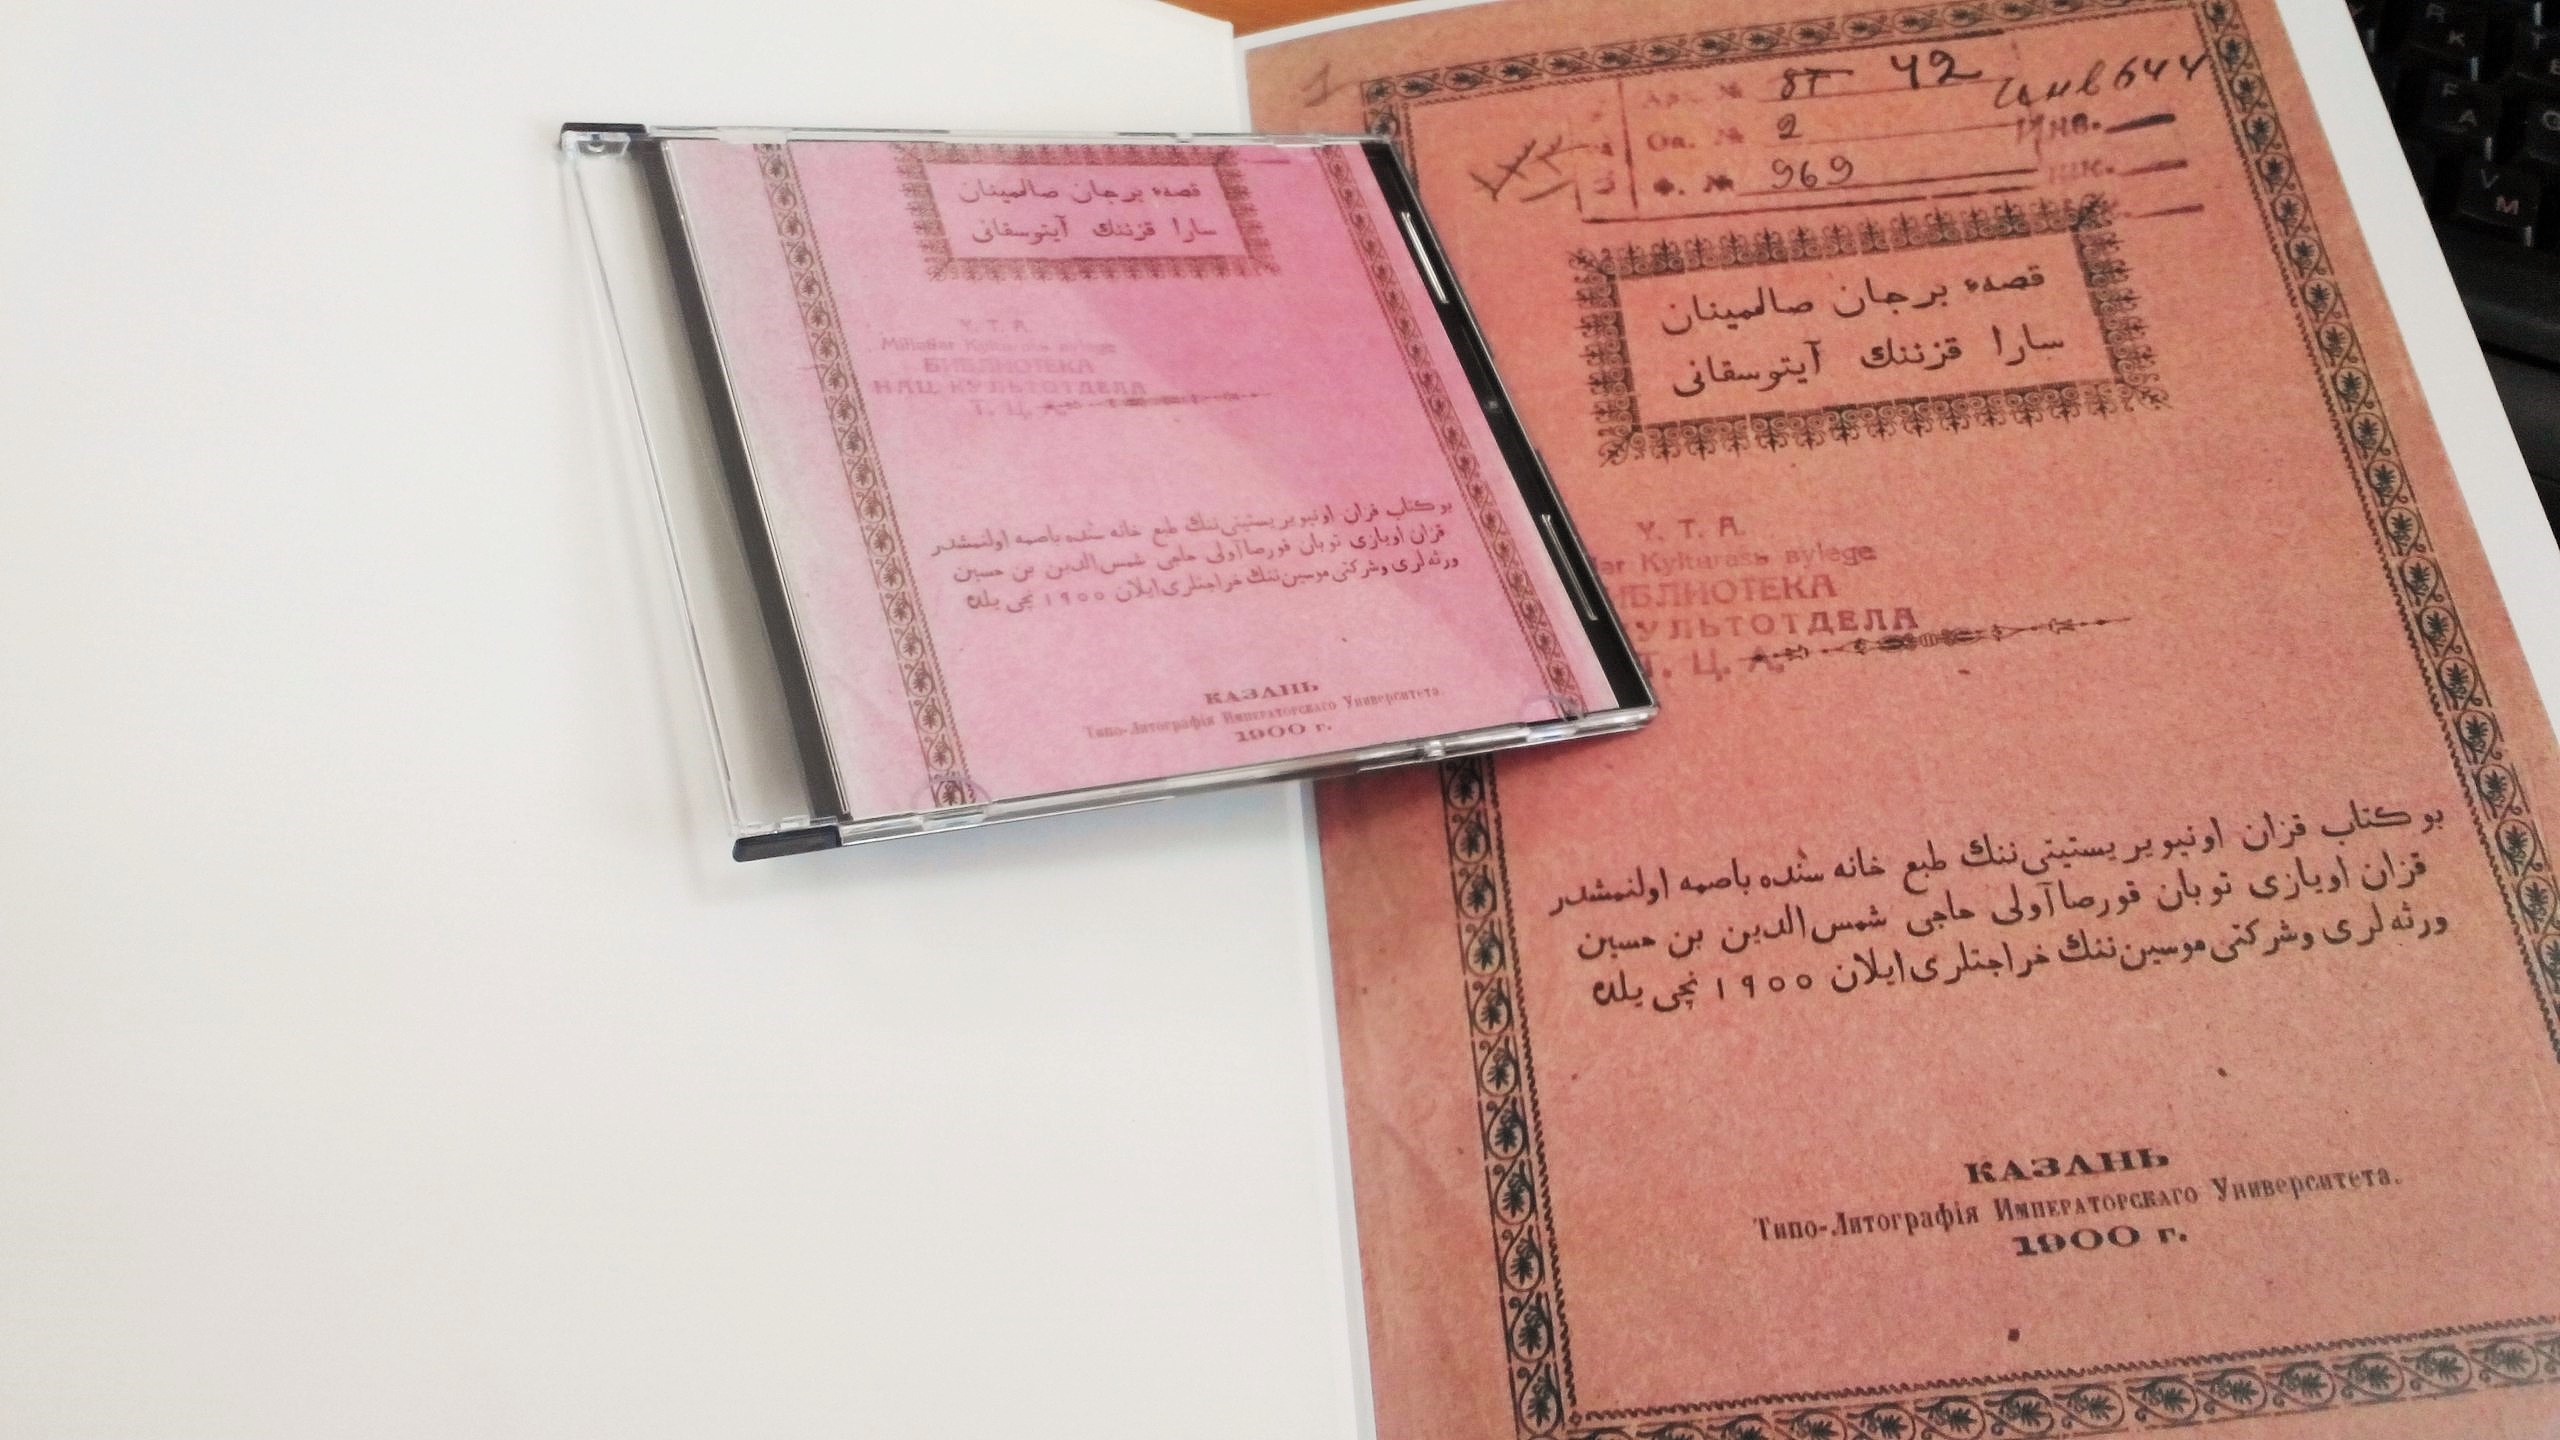 قصهٔ برجان صالمينان
سارا قزننك آيتوسقانى
Y. T. A.
Kylturasь
БИБЛИОТЕКА
НАЦ КУЛЬТОТДЕЛА
Т. Ц. А.
بو كتاب قزان اونيويريستيتى‌ننك طبع خانه سنده باصمه اولنمشدر
قزان اويازى توبان قورصا آولى حاجى شمس الدين بن حسين
ورثه لرى وشركتى موسين‌ننك خراجتلرى ايلان ١٩٠٠ نچى يلده
КАЗАНЬ
Типо-Литографія Императорскаго Университета.
1900 г.
1
№ 8Т 42 инв 644
Оп. № 2 Инв.
Ф. № 969
قصهٔ برجان صالمينان
سارا قزننك آيتوسقانى
Y. T. A.
Kylturasь aylege
ИБЛИОТЕКА
УЛЬТОТДЕЛА
Т. Ц. А.
بو كتاب قزان اونيويريستيتى‌ننك طبع خانه سنده باصمه اولنمشدر
قزان اويازى توبان قورصا آولى حاجى شمس الدين بن حسين
ورثه لرى وشركتى موسين‌ننك خراجتلرى ايلان ١٩٠٠ نچى يلده
КАЗАНЬ
Типо-Литографія Императорскаго Университета.
1900 г.